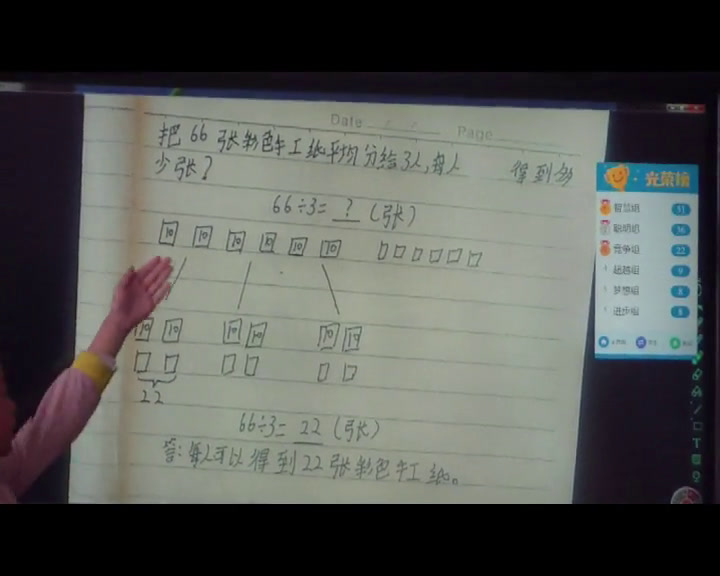 Date Page
把66张彩色手工纸平均分给3人,每人 得到多
少张?
66÷3= ? (张)
10 10 10 10 10 10
10 10 10 10 10 10
22
66÷3= 22 (张)
答:每人可以得到22张彩色手工纸。
光荣榜
智慧组 51
聪明组 36
竞争组 22
超越组 9
梦想组 8
进步组 8
T